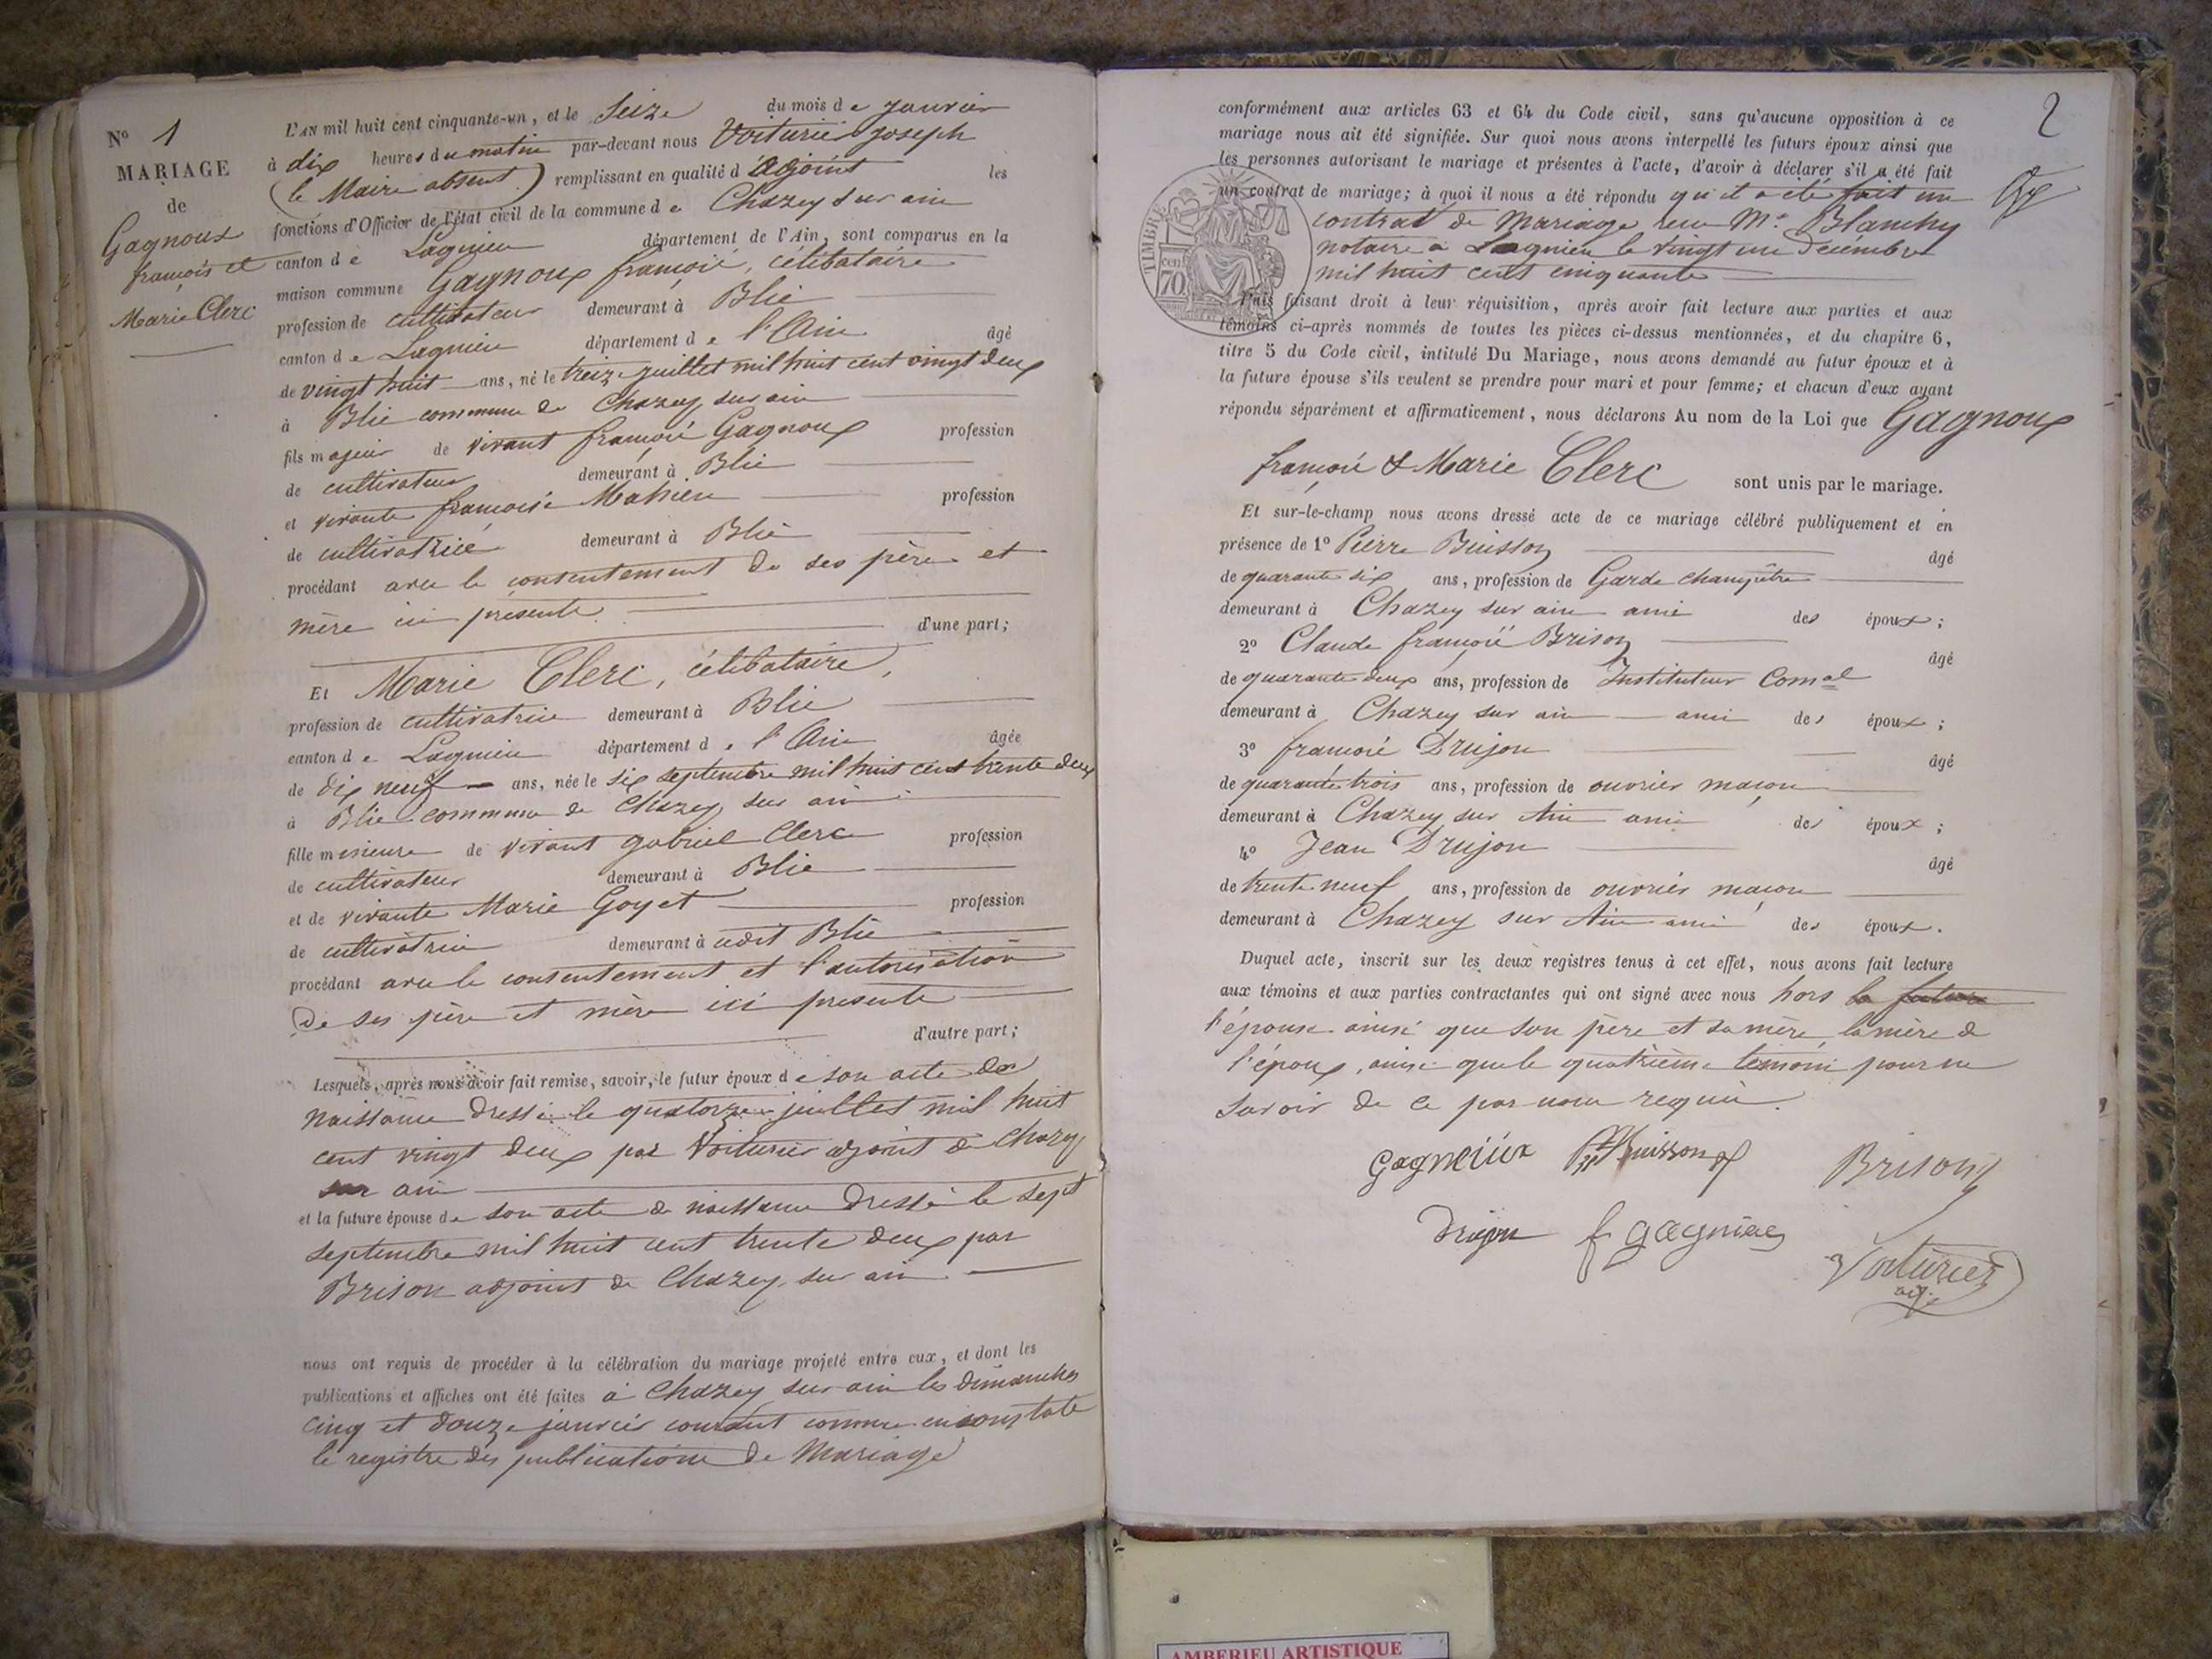 N° 1
MARIAGE
de
Gagnoux
françois et
Marie Clerc
L'AN mil huit cent cinquante-un, et le Seize du mois de janvier
à dix heures du matin par-devant nous Voiturier joseph
(le Maire absent) remplissant en qualité d'adjoint les
fonctions d'Officier de l'état civil de la commune de Chazey sur ain
canton de Lagnieu département de l'Ain, sont comparus en la
maison commune Gagnoux françois, célibataire
profession de cultivateur demeurant à Blie
canton de Lagnieu département de l'Ain âgé
de vingt huit ans, né le treize juillet mil huit cent vingt deux
à Blie commune de Chazey sur ain
fils majeur de vivant françois Gagnoux profession
de cultivateur demeurant à Blie
et vivante françoise Mahieu profession
de cultivatrice demeurant à Blie
procédant avec le consentement de ses père et
mère ici présente d'une part;
Et Marie Clerc, célibataire,
profession de cultivatrice demeurant à Blie
canton de Lagnieu département de l'Ain âgée
de dix neuf ans, née le six septembre mil huit cent trente deux
à Blie commune de Chazey sur ain
fille mineure de vivant gabriel Clerc profession
de cultivateur demeurant à Blie
et de vivante Marie Goyet profession
de cultivatrice demeurant à udit Blie
procédant avec le consentement et l'autorisation
De ses père et mère ici presente
d'autre part;
Lesquels, après nous avoir fait remise, savoir, le futur époux de son acte de
naissance dressé le quatorze juillet mil huit
cent vingt deux par Voiturier adjoint de Chazey
sur ain
et la future épouse de son acte de naissance dressé le sept
septembre mil huit cent trente deux par
Brison adjoint de Chazey sur ain
nous ont requis de procéder à la célébration du mariage projeté entre eux, et dont les
publications et affiches ont été faites à Chazey sur ain les dimanches
cinq et douze janvier courant comme en constate
le registre des publications de Mariage
2
conformément aux articles 63 et 64 du Code civil, sans qu'aucune opposition à ce
mariage nous ait été signifiée. Sur quoi nous avons interpellé les futurs époux ainsi que
les personnes autorisant le mariage et présentes à l'acte, d'avoir à déclarer s'il a été fait
un contrat de mariage; à quoi il nous a été répondu qu'il a été fait un
contrat de Mariage reçu Me Blanchy
notaire à Lagnieu le vingt un Décembre
mil huit cent cinquante
TIMBRE
70 cent
Puis faisant droit à leur réquisition, après avoir fait lecture aux parties et aux
témoins ci-après nommés de toutes les pièces ci-dessus mentionnées, et du chapitre 6,
titre 5 du Code civil, intitulé Du Mariage, nous avons demandé au futur époux et à
la future épouse s'ils veulent se prendre pour mari et pour femme; et chacun d'eux ayant
répondu séparément et affirmativement, nous déclarons Au nom de la Loi que Gagnoux
françois & Marie Clerc sont unis par le mariage.
Et sur-le-champ nous avons dressé acte de ce mariage célébré publiquement et en
présence de 1° Pierre Buisson âgé
de quarante six ans, profession de Garde champêtre
demeurant à Chazey sur ain ami des époux;
2° Claude françois Brison âgé
de quarante deux ans, profession de Instituteur Comal
demeurant à Chazey sur ain ami des époux;
3° françois Drujon âgé
de quarante trois ans, profession de ouvrier maçon
demeurant à Chazey sur Ain ami des époux;
4° Jean Drujon âgé
de trente neuf ans, profession de ouvrier maçon
demeurant à Chazey sur Ain ami des époux.
Duquel acte, inscrit sur les deux registres tenus à cet effet, nous avons fait lecture
aux témoins et aux parties contractantes qui ont signé avec nous hors la future
l'épouse ainsi que son père et sa mère, la mère de
l'époux, ainsi que le quatrième temoin pour ne
savoir de ce par nous requis.
Gagneux Buisson Brison
Drujon f gagnieu
Voiturier
adj.
AMBERIEU ARTISTIQUE